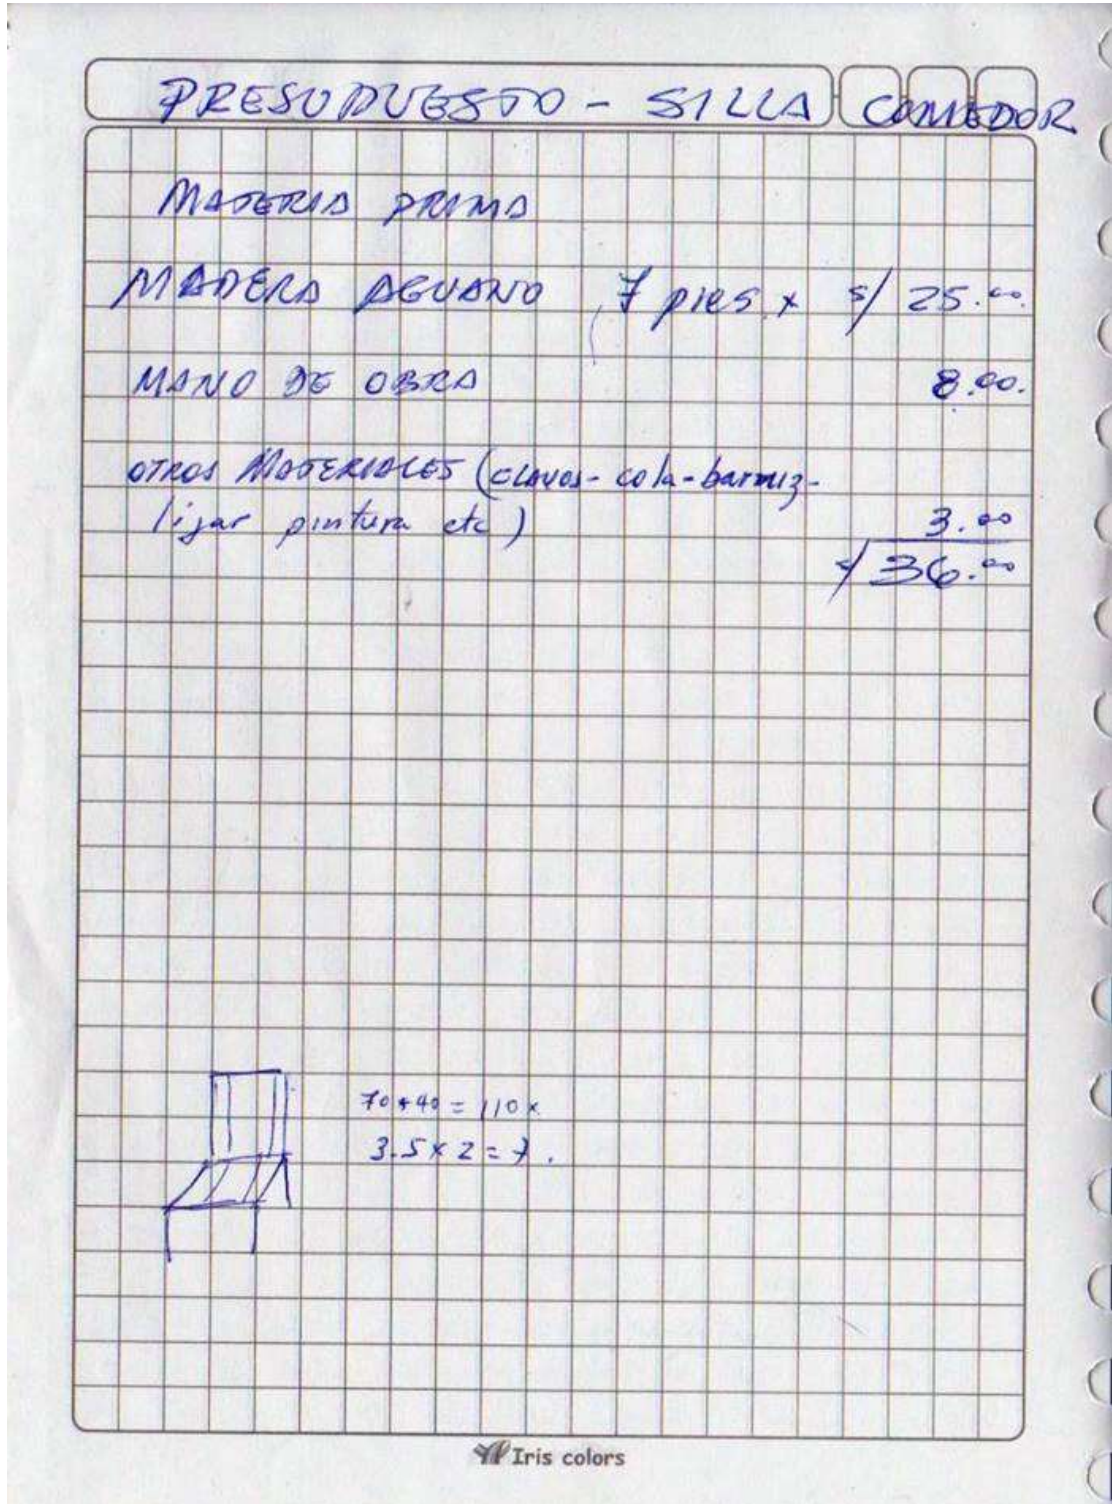 PRESUPUESTO - SILLA COMEDOR
MATERIA PRIMA
MADERA AGUANO 7 pies x s/ 25.00.
MANO DE OBRA 8.00.
OTROS MATERIALES (CLAVOS - cola - barniz -
lijar pintura etc) 3.00
s/ 36.00
70+40 = 110 x
3.5 x 2 = 7.
Iris colors